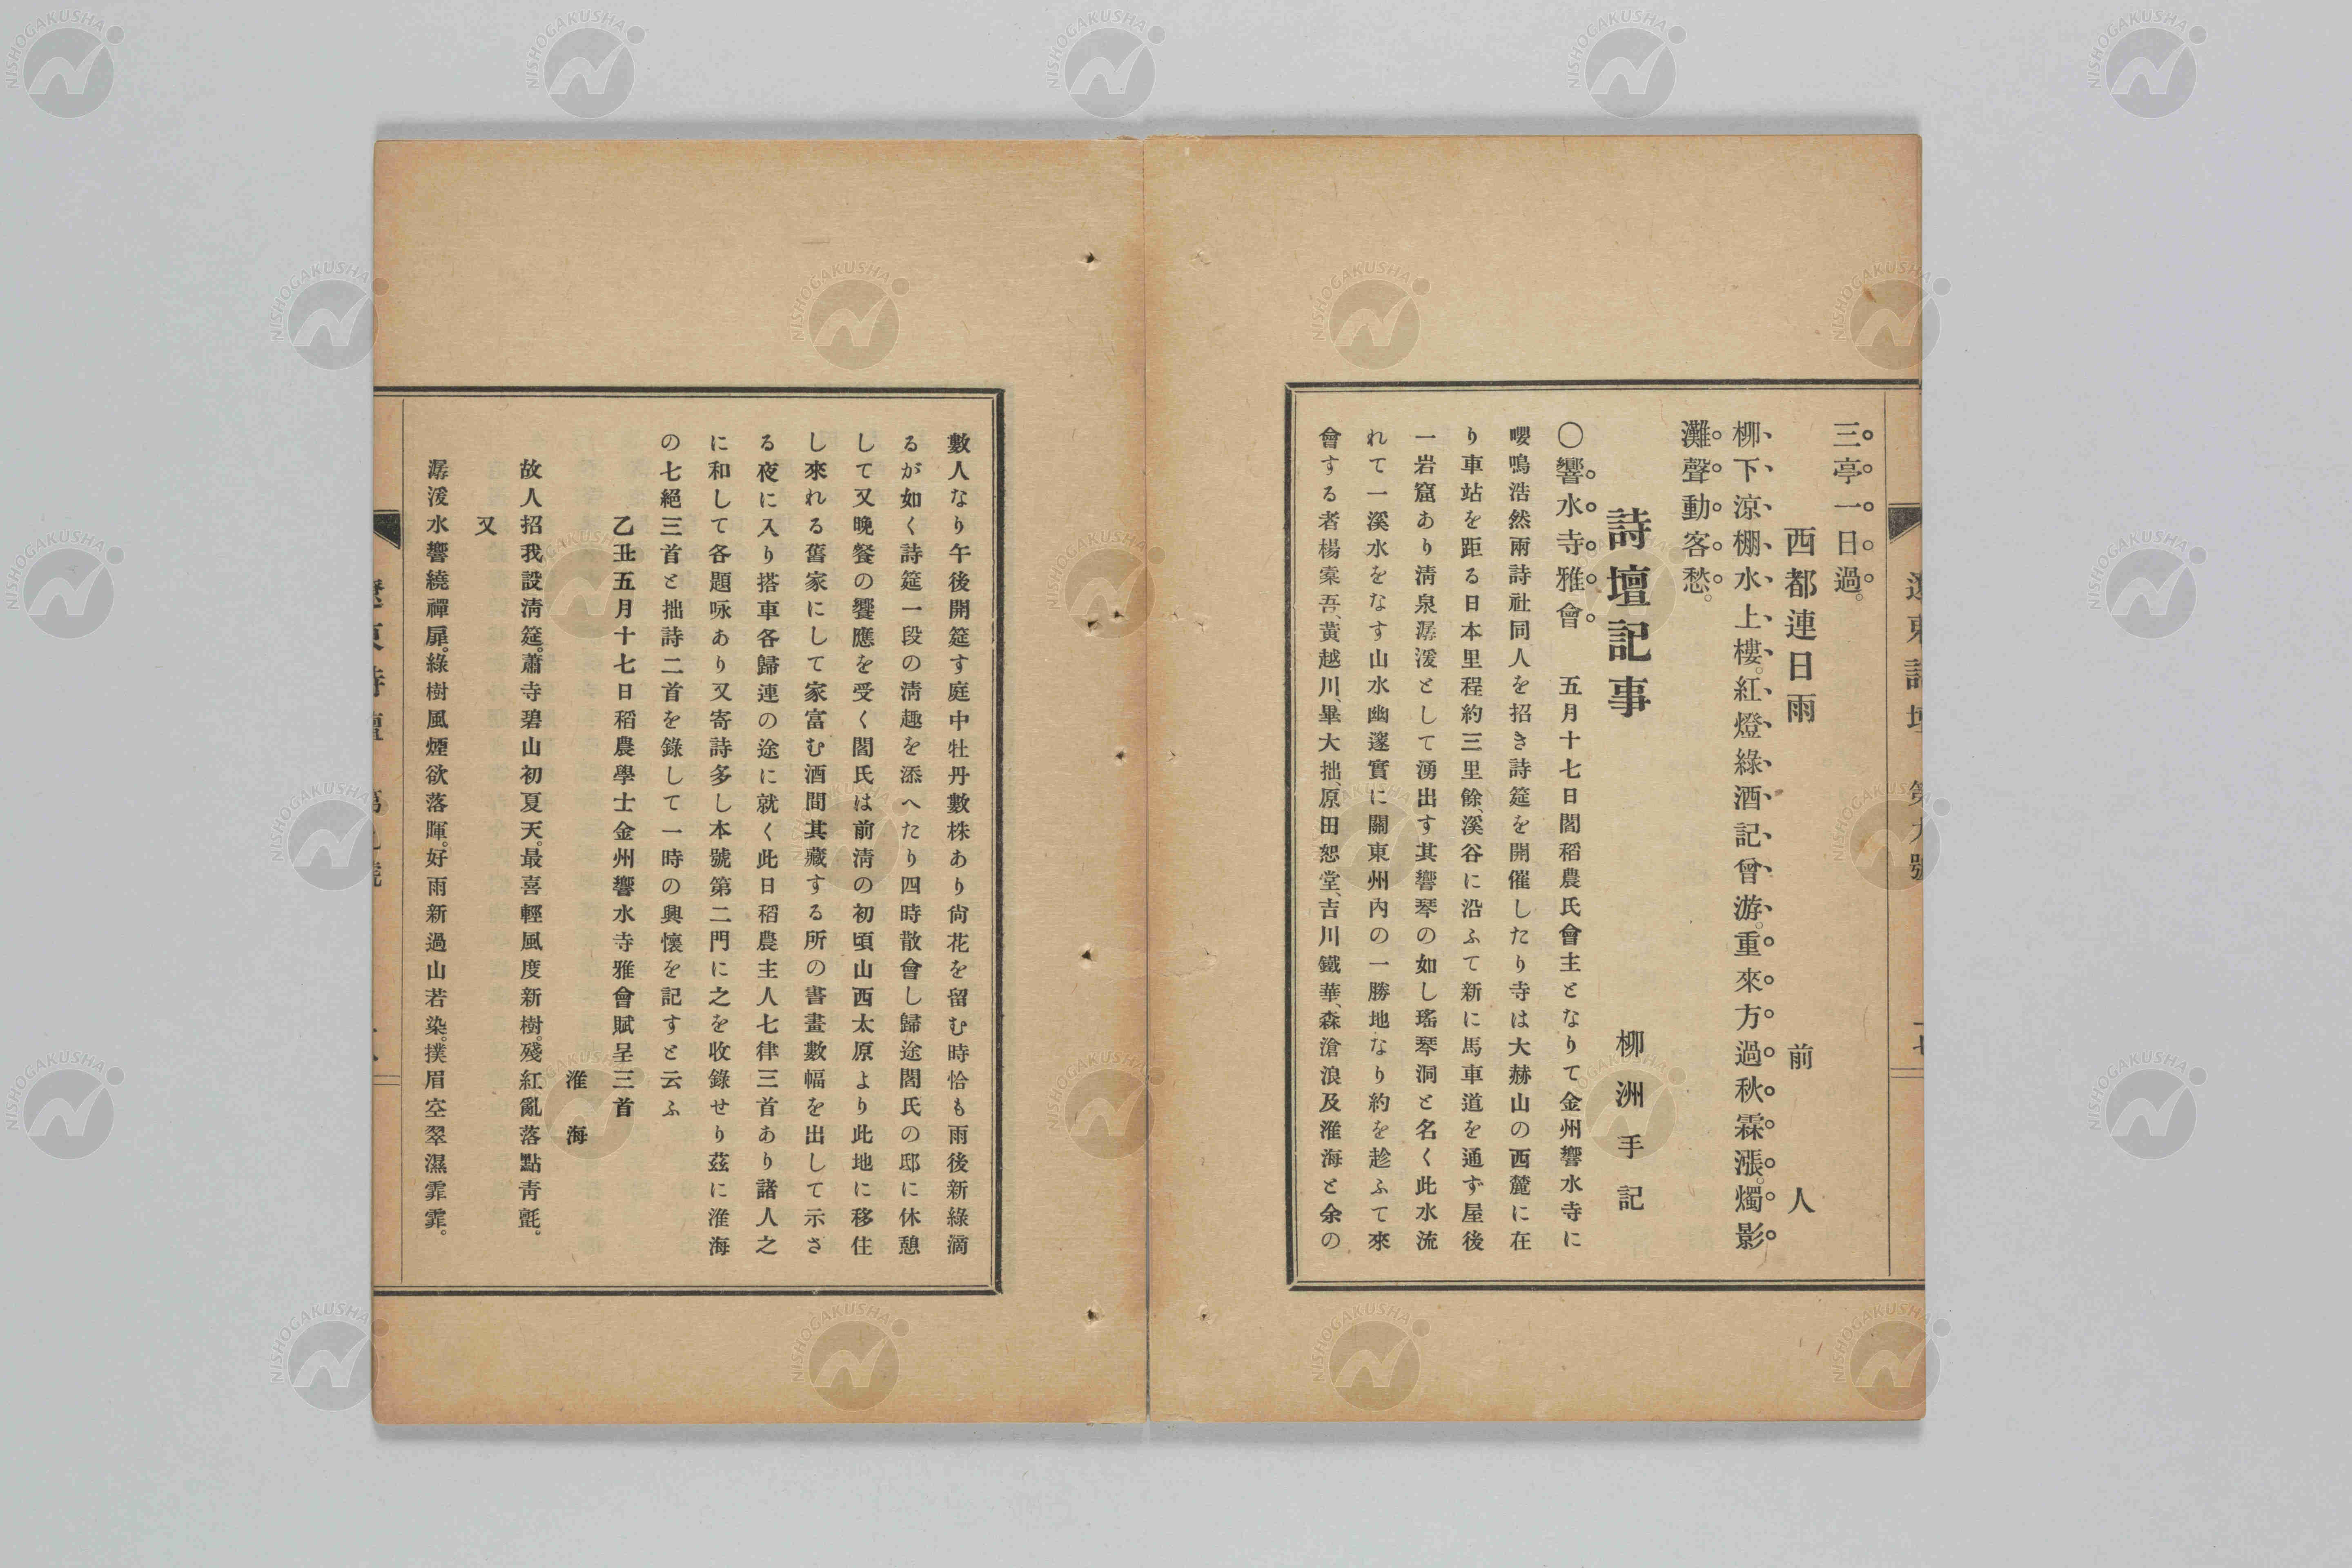 三亭一日過。
西都連日雨　前人
柳下涼棚水上樓。紅燈綠酒記曾游。重來方過秋霖漲。燭影
灘聲動客愁。
詩壇記事　柳洲手記
〇響水寺雅會　五月十七日閻稻農氏會主となりて金州響水寺に
嚶鳴浩然兩詩社同人を招き詩筵を開催したり寺は大赫山の西麓に在
り車站を距る日本里程約三里餘、溪谷に沿ふて新に馬車道を通ず屋後
一岩窟あり淸泉潺湲として湧出す其響琴の如し瑤琴洞と名く此水流
れて一溪水をなす山水幽邃實に關東州內の一勝地なり約を趁ふて來
會する者楊槖吾、黃越川、畢大拙、原田恕堂、吉川鐵華、森滄浪及淮海と余の
數人なり午後開筵す庭中牡丹數株あり尙花を留む時恰も雨後新綠滴
るが如く詩筵一段の淸趣を添へたり四時散會し歸途閻氏の邸に休憩
して又晩餐の饗應を受く閻氏は前淸の初頃山西太原より此地に移住
し來れる舊家にして家富む酒間其藏する所の書畫數幅を出して示さ
る夜に入り搭車各歸連の途に就く此日稻農主人七律三首あり諸人之
に和して各題咏あり又寄詩多し本號第二門に之を收錄せり茲に淮海
の七絕三首と拙詩二首を錄して一時の興懷を記すと云ふ
乙丑五月十七日稻農學士金州響水寺雅會賦呈三首
淮海
故人招我設淸筵。蕭寺碧山初夏天。最喜輕風度新樹。殘紅亂落點靑氈。
又
潺湲水響繞禪扉。綠樹風煙欲落暉。好雨新過山若染。撲眉空翠濕霏霏。
NISHOGAKUSHA